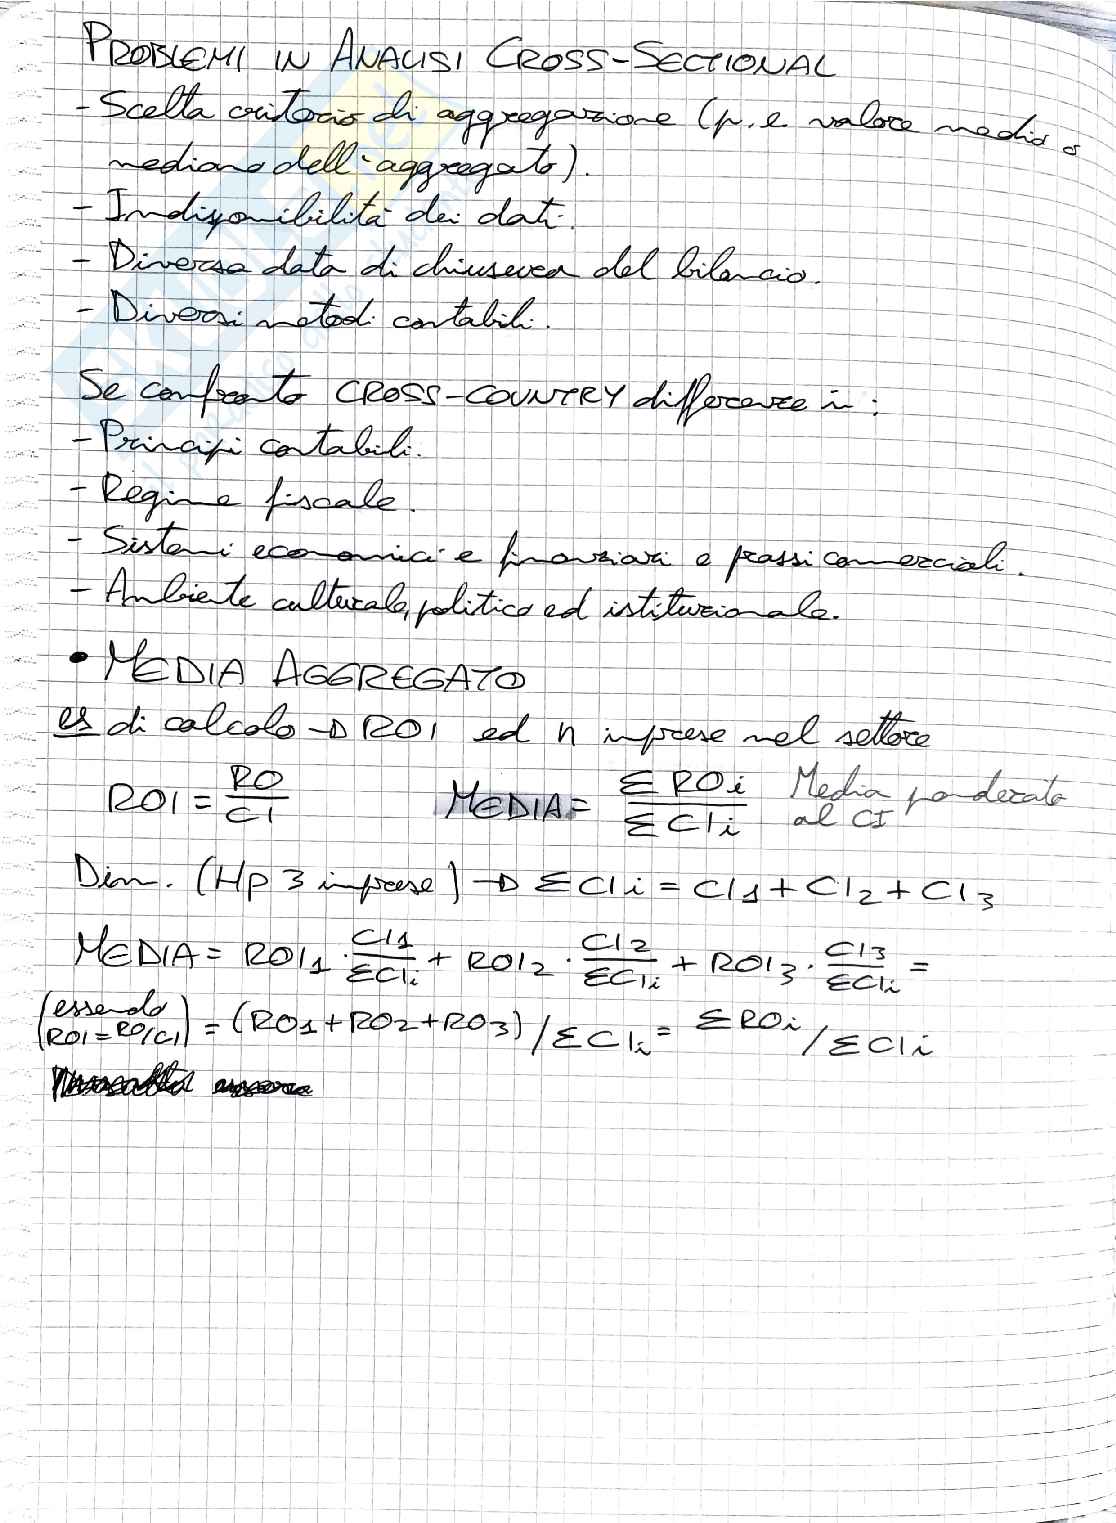 PROBLEMI IN ANALISI CROSS-SECTIONAL
- Scelta criterio di aggregazione (p.e valore medio o
mediano dell'aggregato).
- Indisponibilità dei dati.
- Diversa data di chiusura del bilancio.
- Diversi metodi contabili.
Se confronto CROSS-COUNTRY differenze in:
- Principi contabili.
- Regime fiscale.
- Sistemi economici e finanziari e prassi commerciali.
- Ambiente culturale, politico ed istituzionale.
• MEDIA AGGREGATO
es di calcolo → ROI ed n imprese nel settore
ROI = RO/CI MEDIA = ΣROi/ΣCIi Media ponderata al CI
Dim. (Hp 3 imprese) → ΣCIi = CI1 + CI2 + CI3
MEDIA = ROI1 · CI1/ΣCIi + ROI2 · CI2/ΣCIi + ROI3 · CI3/ΣCIi =
(essendo ROI = RO/CI) = (RO1 + RO2 + RO3) / ΣCIi = ΣROi / ΣCIi